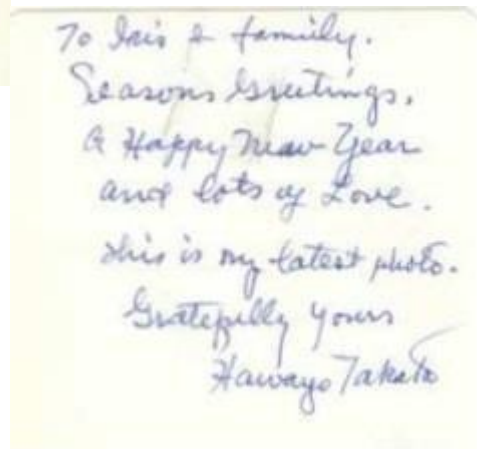 To Iris & family.
Seasons Greetings.
A Happy New Year
and lots of Love.
This is my latest photo.
Gratefully yours
Hawayo Takata